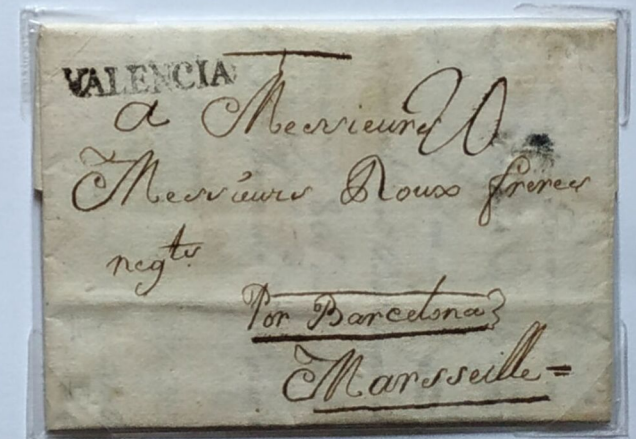 VALENCIA
a Messieurs 20
Messieurs Roux freres
negts
Por Barcelona
Marsseille =